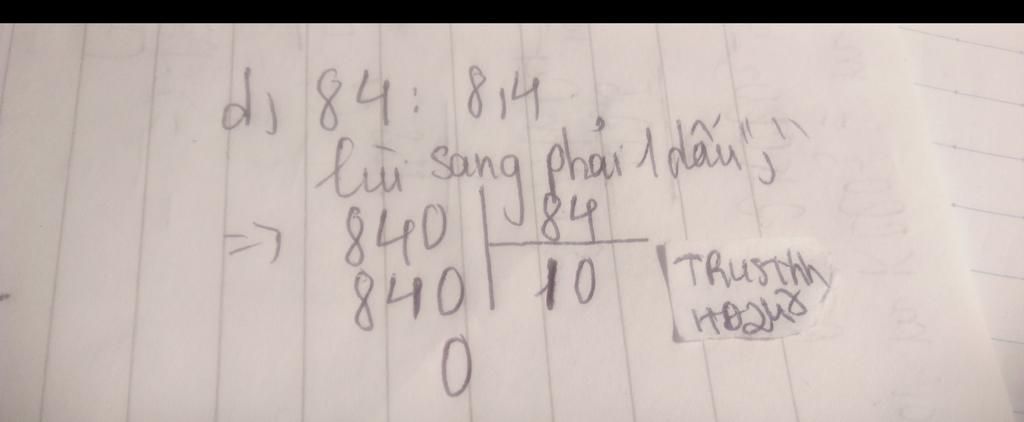 d, 84 : 8,4
lùi sang phải 1 dấu ","
=> 840 | 84
840 | 10
0
TRUSThh
HĐ248